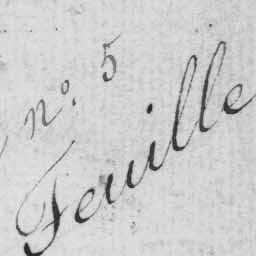 nº. 5
Feuille